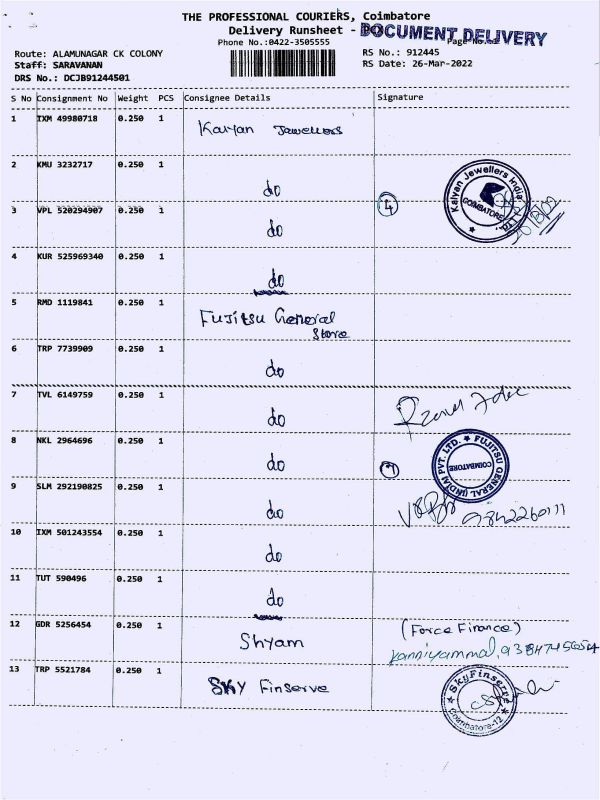 THE PROFESSIONAL COURIERS, Coimbatore
Delivery Runsheet - DOX
DOCUMENT DELIVERY
Phone No.:0422-3505555
Route: ALAMUNAGAR CK COLONY
RS No.: 912445
Staff: SARAVANAN
RS Date: 26-Mar-2022
DRS No.: DCJB91244501
S No Consignment No Weight PCS Consignee Details Signature
1 IXM 49980718 0.250 1 Kalyan Jewellers
2 KMU 3232717 0.250 1 do
Kalyan Jewellers India Ltd.
COIMBATORE
4
3 VPL 520294907 0.250 1 do
4 KUR 525969340 0.250 1 do
5 RMD 1119841 0.250 1 Fujitsu General
Store
6 TRP 7739909 0.250 1 do
7 TVL 6149759 0.250 1 do
8 NKL 2964696 0.250 1 do
FUJITSU GENERAL (INDIA) PVT. LTD.
COIMBATORE
7
9 SLM 292190825 0.250 1 do
10 IXM 501243554 0.250 1 do
11 TUT 590496 0.250 1 do
12 GDR 5256454 0.250 1 Shyam (Force Finance)
Kanniyammal.
13 TRP 5521784 0.250 1 SKY Finserve
SkyFinserve
Coimbatore-12